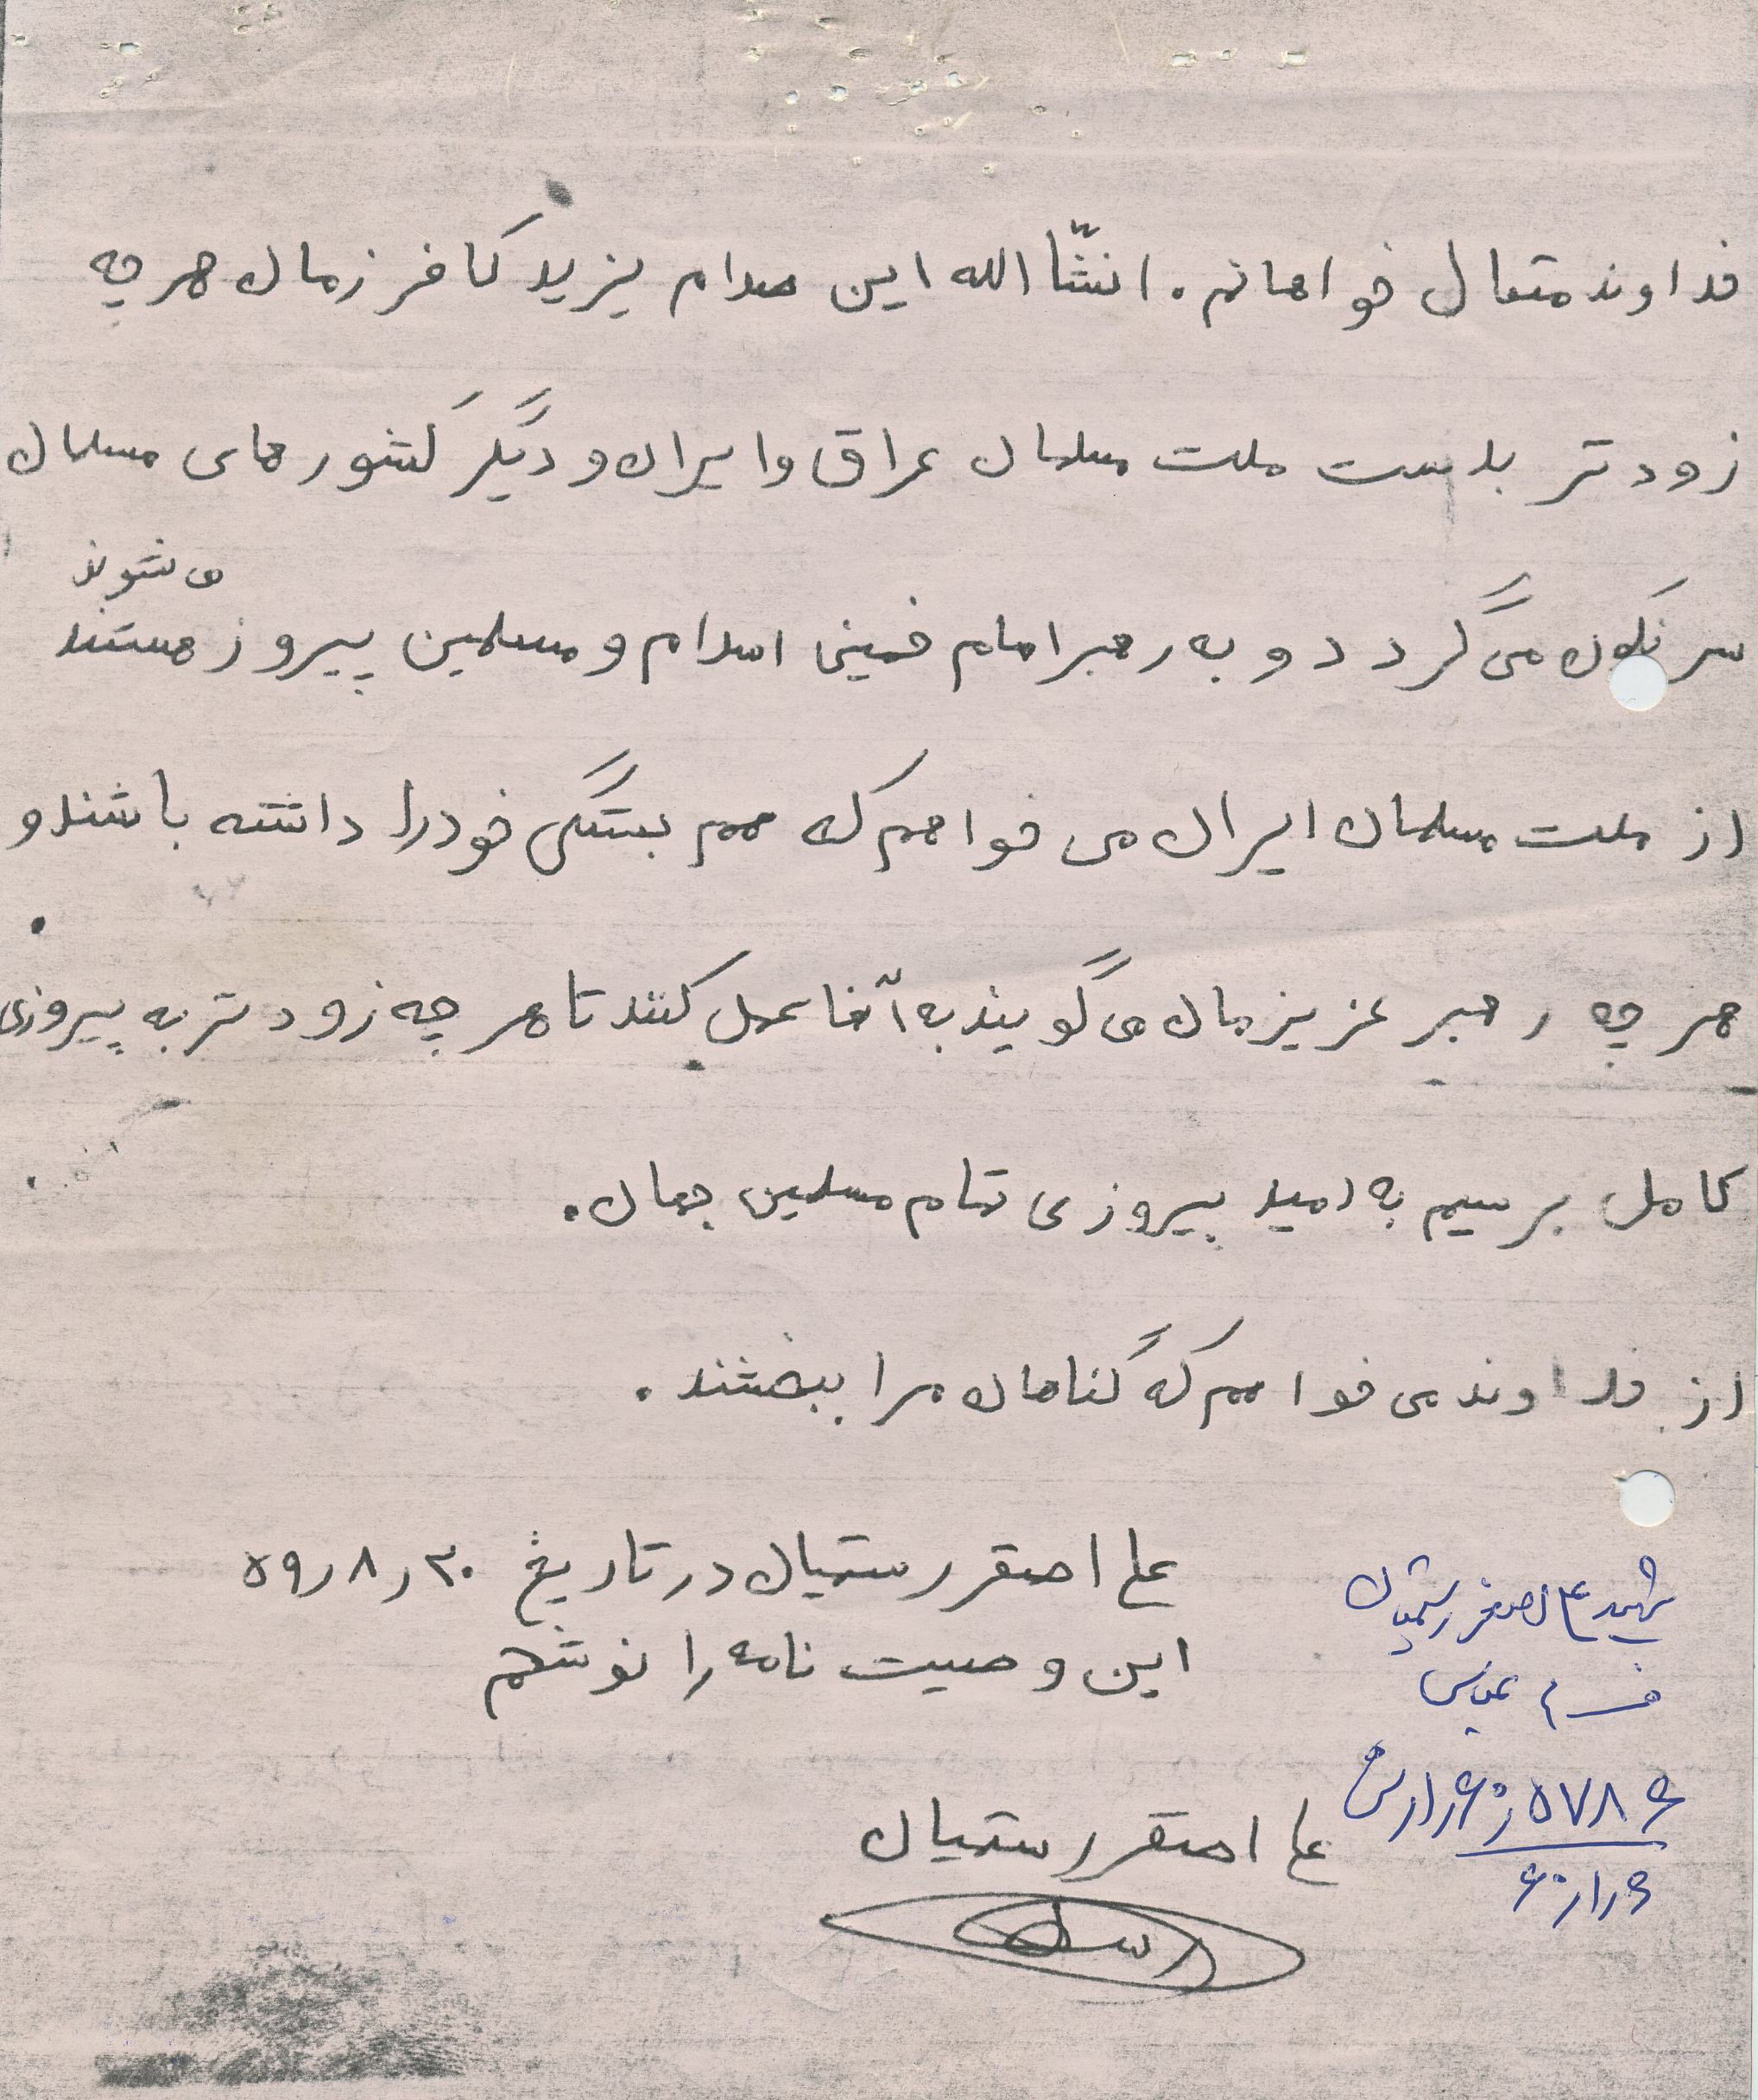 خداوند متعال خواهانم. انشّاالله این صدام یزید کافر زمان هر چه
زودتر بدست ملت مسلمان عراق و ایران و دیگر کشورهای مسلمان
می شوند
سرنگون می گردد و به رهبر امام خمینی اسلام و مسلمین پیروز هستند
از ملت مسلمان ایران می خواهم که هم بستگی خود را داشته باشند و
هر چه رهبر عزیزمان می گویند به آنها عمل کنند تا هر چه زودتر به پیروزی
کامل برسیم به امید پیروزی تمام مسلمین جهان.
از خداوند می خواهم که گناهان مرا ببخشند.
علی اصغر رستمیان در تاریخ ۵۹٫۸٫۳۰
این وصیت نامه را نوشتم
علی اصغر رستمیان
شهید علی اصغر رستمیان
عباس
۵۷۸۶
۶۰٫۱٫۶